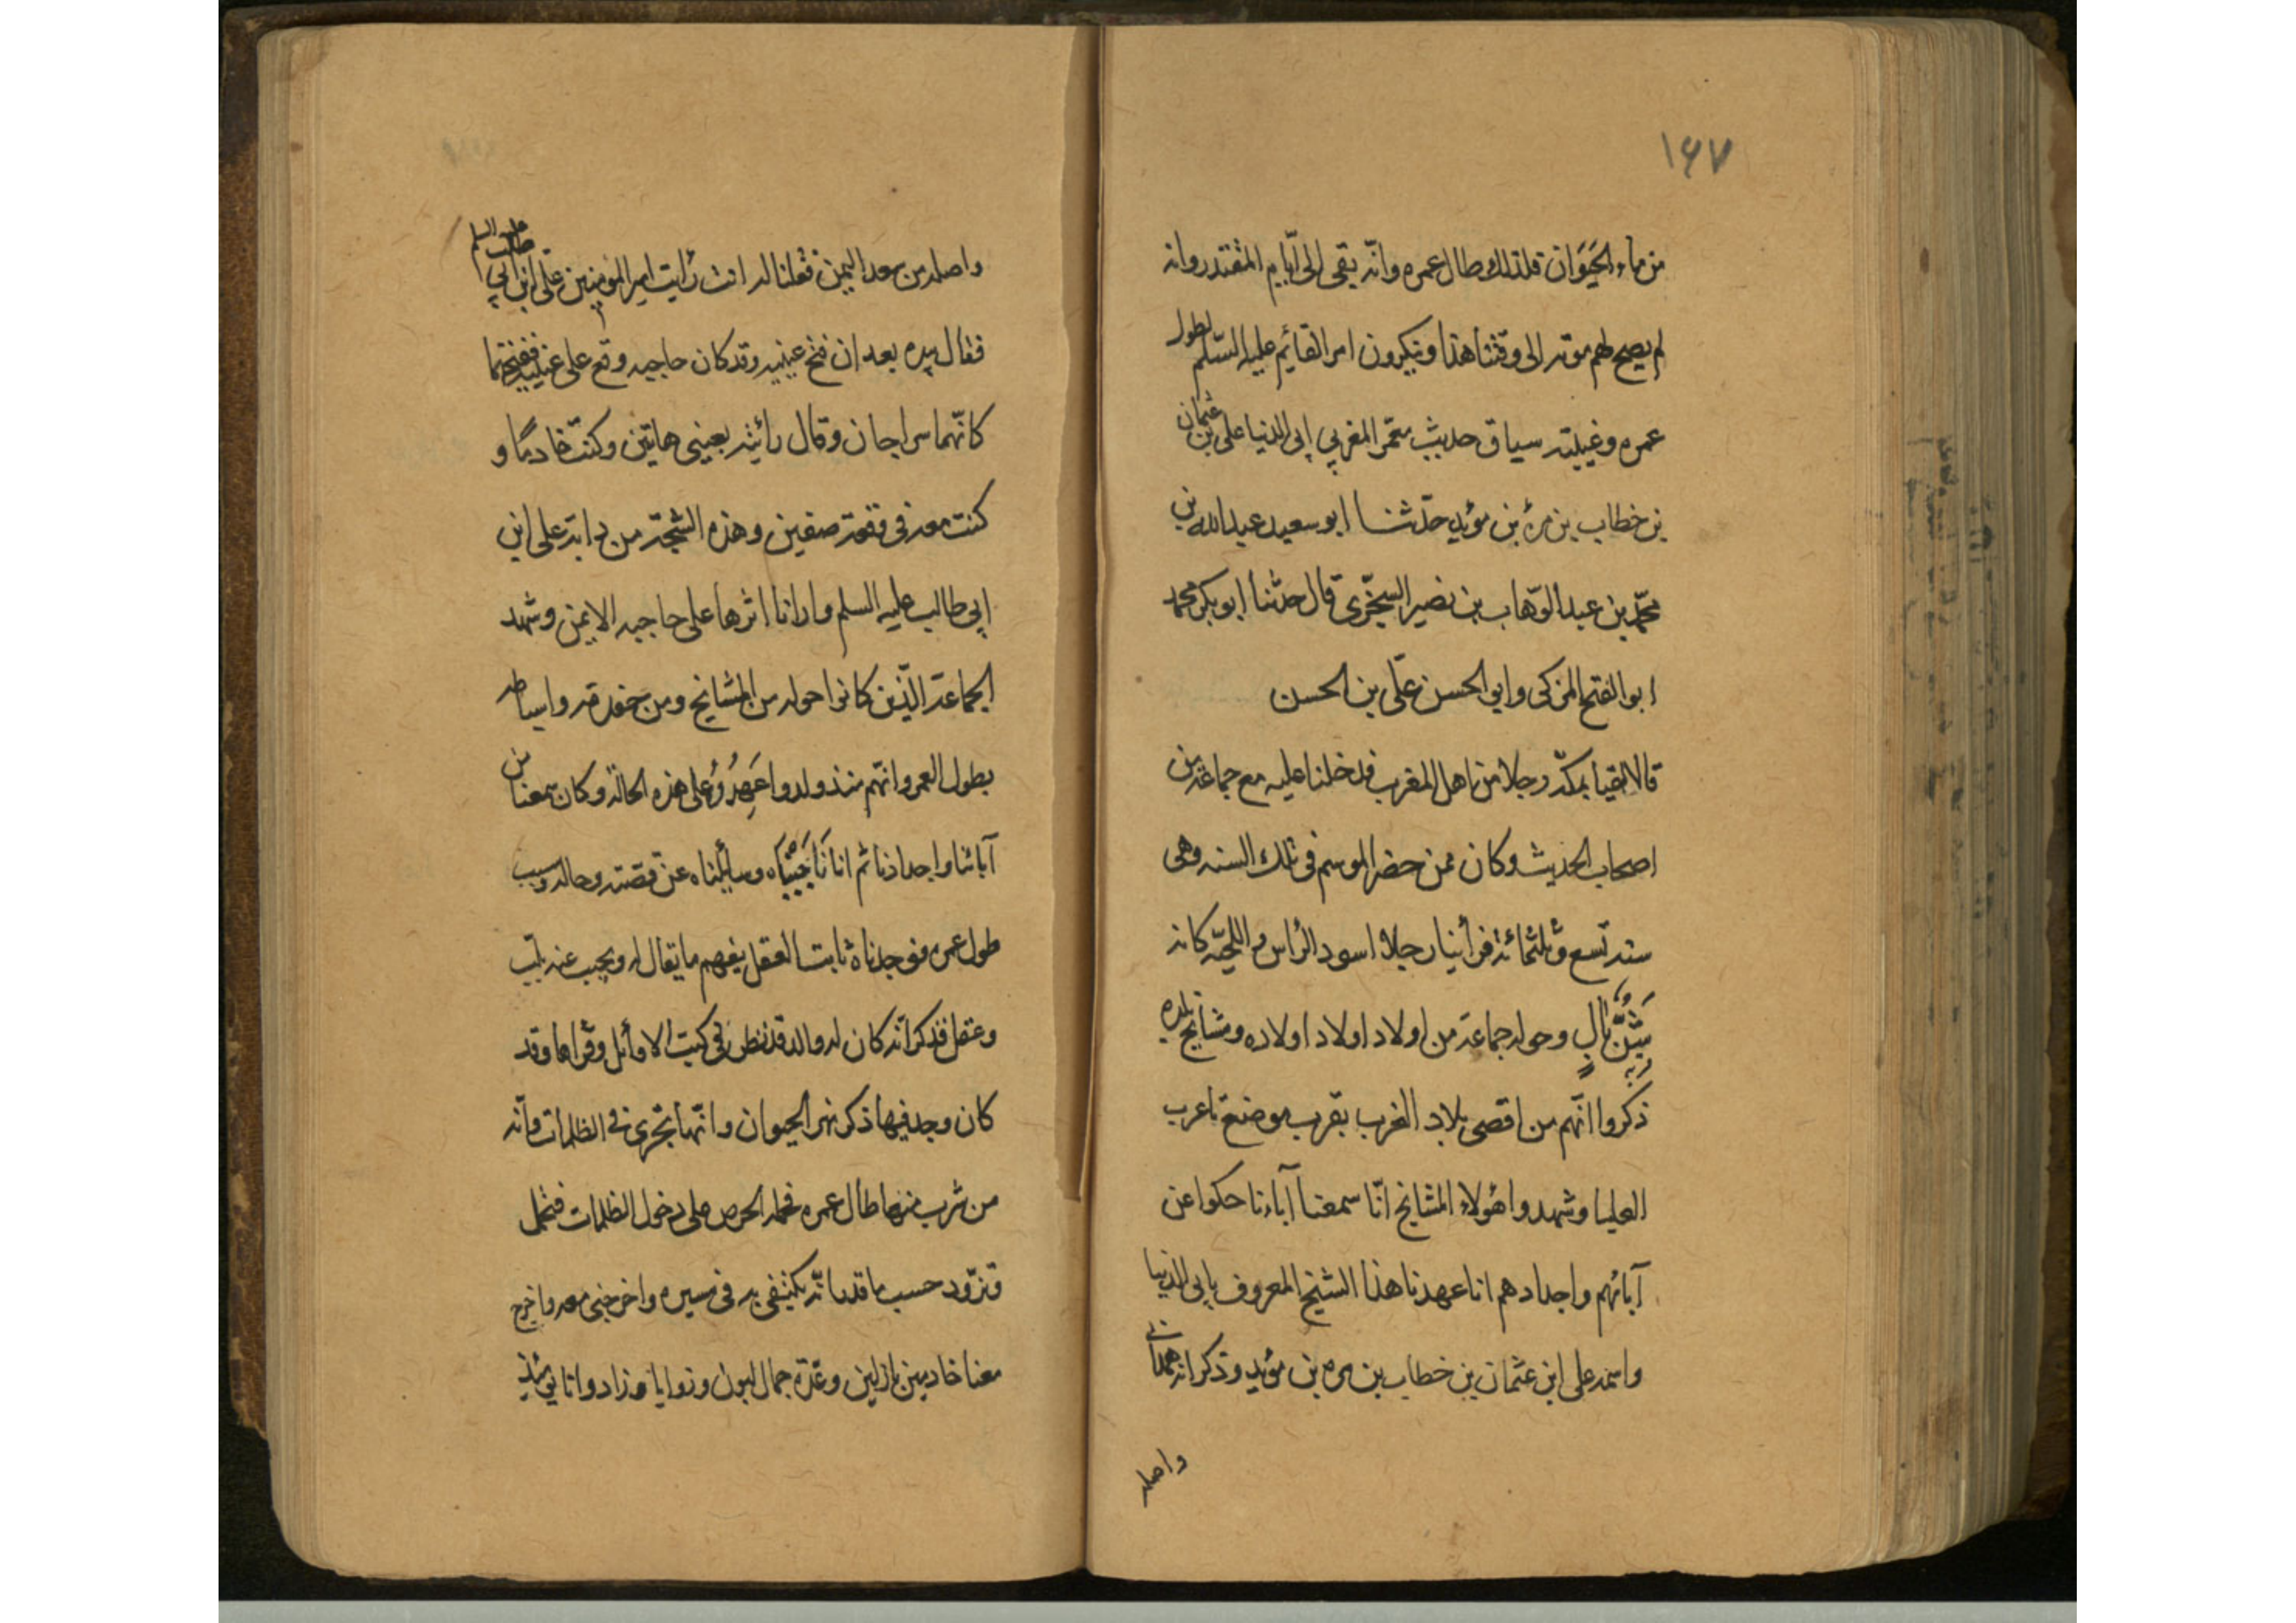 ١٤٧
من ماء الحَيَوان فلذلك طال عمره وانّه بقى الى ايّام المقتدر وانه
لم يصح لهم موته الى وقتنا هذا وينكرون امر القائم عليه السّلم لطول
عمره وغيبته سياق حديث معمّر المغربي ابى الدنيا على بن عثمان
بن خطاب بن مرة بن مؤيد حدّثنا ابو سعيد عبدالله بن
محمّد بن عبد الوّهاب بن نصير السّجزى قال حدثنا ابو بكر محمد
ابو الفتح المزكى وابو الحسن علّى بن الحسن
قالا لقينا بمكّة رجلا من اهل المغرب فدخلنا عليه مع جماعة من
اصحاب الحديث وكان ممن حضر الموسم فى تلك السنه وهى
سنه تسع وثلثمائة فرأينا رجلا اسود الرأس و اللحيّه كانه
شنّ بال وحوله جماعة من اولاد اولاد اولاده ومشايخ بلده
ذكروا انّهم من اقصى بلاد المغرب بقرب موضع باعرب
العليا وشهدوا هؤلاء المشايخ انّا سمعنا آباءنا حكوا عن
آبائهم واجدادهم انا عهدنا هذا الشيخ المعروف بابى الدنيا
واسمه على ابن عثمان بن خطاب بن مره بن مؤيد وذكر انه همداني
واصله
واصله من صعد اليمن فقلنا له انت رأيت امير المؤمنين علّى ابن ابي طالب عليه السلم
فقال بيده بعد ان فتح عينيه وقد كان حاجبيه وقع على عينيه ففتحهما
كانّهما سراجان وقال رأيته بعينى هاتين وكنت خادمًا و
كنت معه فى وقعة صفين وهذه الشّجّة من دابّة على ابن
ابى طالب عليه السلم وارانا اثرها على حاجبه الايمن وشهد
الجماعة الّذين كانوا حوله من المشايخ ومن حفدته واسباطه
بطول العمر وانّهم منذ ولدوا عَهِدُوُه على هذه الحالة وكان سمعنا من
آبائنا واجدادنا ثم انا فاتحناه وسائلناه عن قصته وحاله وسبب
طول عمره فوجدناه ثابت العقل يفهم ما يقال له ويجيب عنه بلب
وعقل فذكر انّه كان له والد قد نظر فى كتب الاوائل وقراها وقد
كان وجد فيها ذكر نهر الحيوان وانّها تجرى فى الظلمات وانّه
من شرب منها طال عمره فحمله الحرص على دخول الظلمات فتحمل
وتزوّد حسب ما قدر انّه يكتفى به فى مسيره واخرجنى معه واخرج
معنا خادمين بازلين وعدّة جمال لبون وزوايا وزاد وانا يومئذ